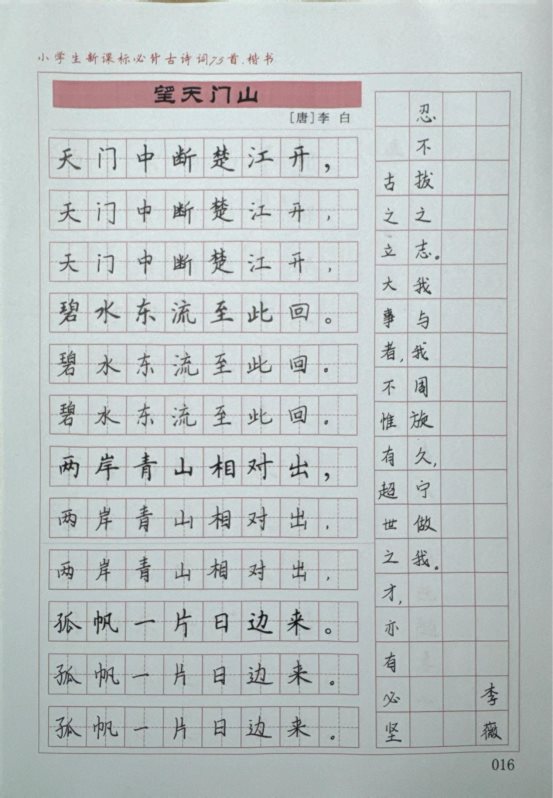 小学生新课标必背古诗词75首.楷书
望天门山
[唐]李 白
天门中断楚江开,
天门中断楚江开,
天门中断楚江开,
碧水东流至此回。
碧水东流至此回。
碧水东流至此回。
两岸青山相对出,
两岸青山相对出,
两岸青山相对出,
孤帆一片日边来。
孤帆一片日边来。
孤帆一片日边来。
古之立大事者,不惟有超世之才,亦有必坚
忍不拔之志。我与我周旋久,宁做我。
李薇
016